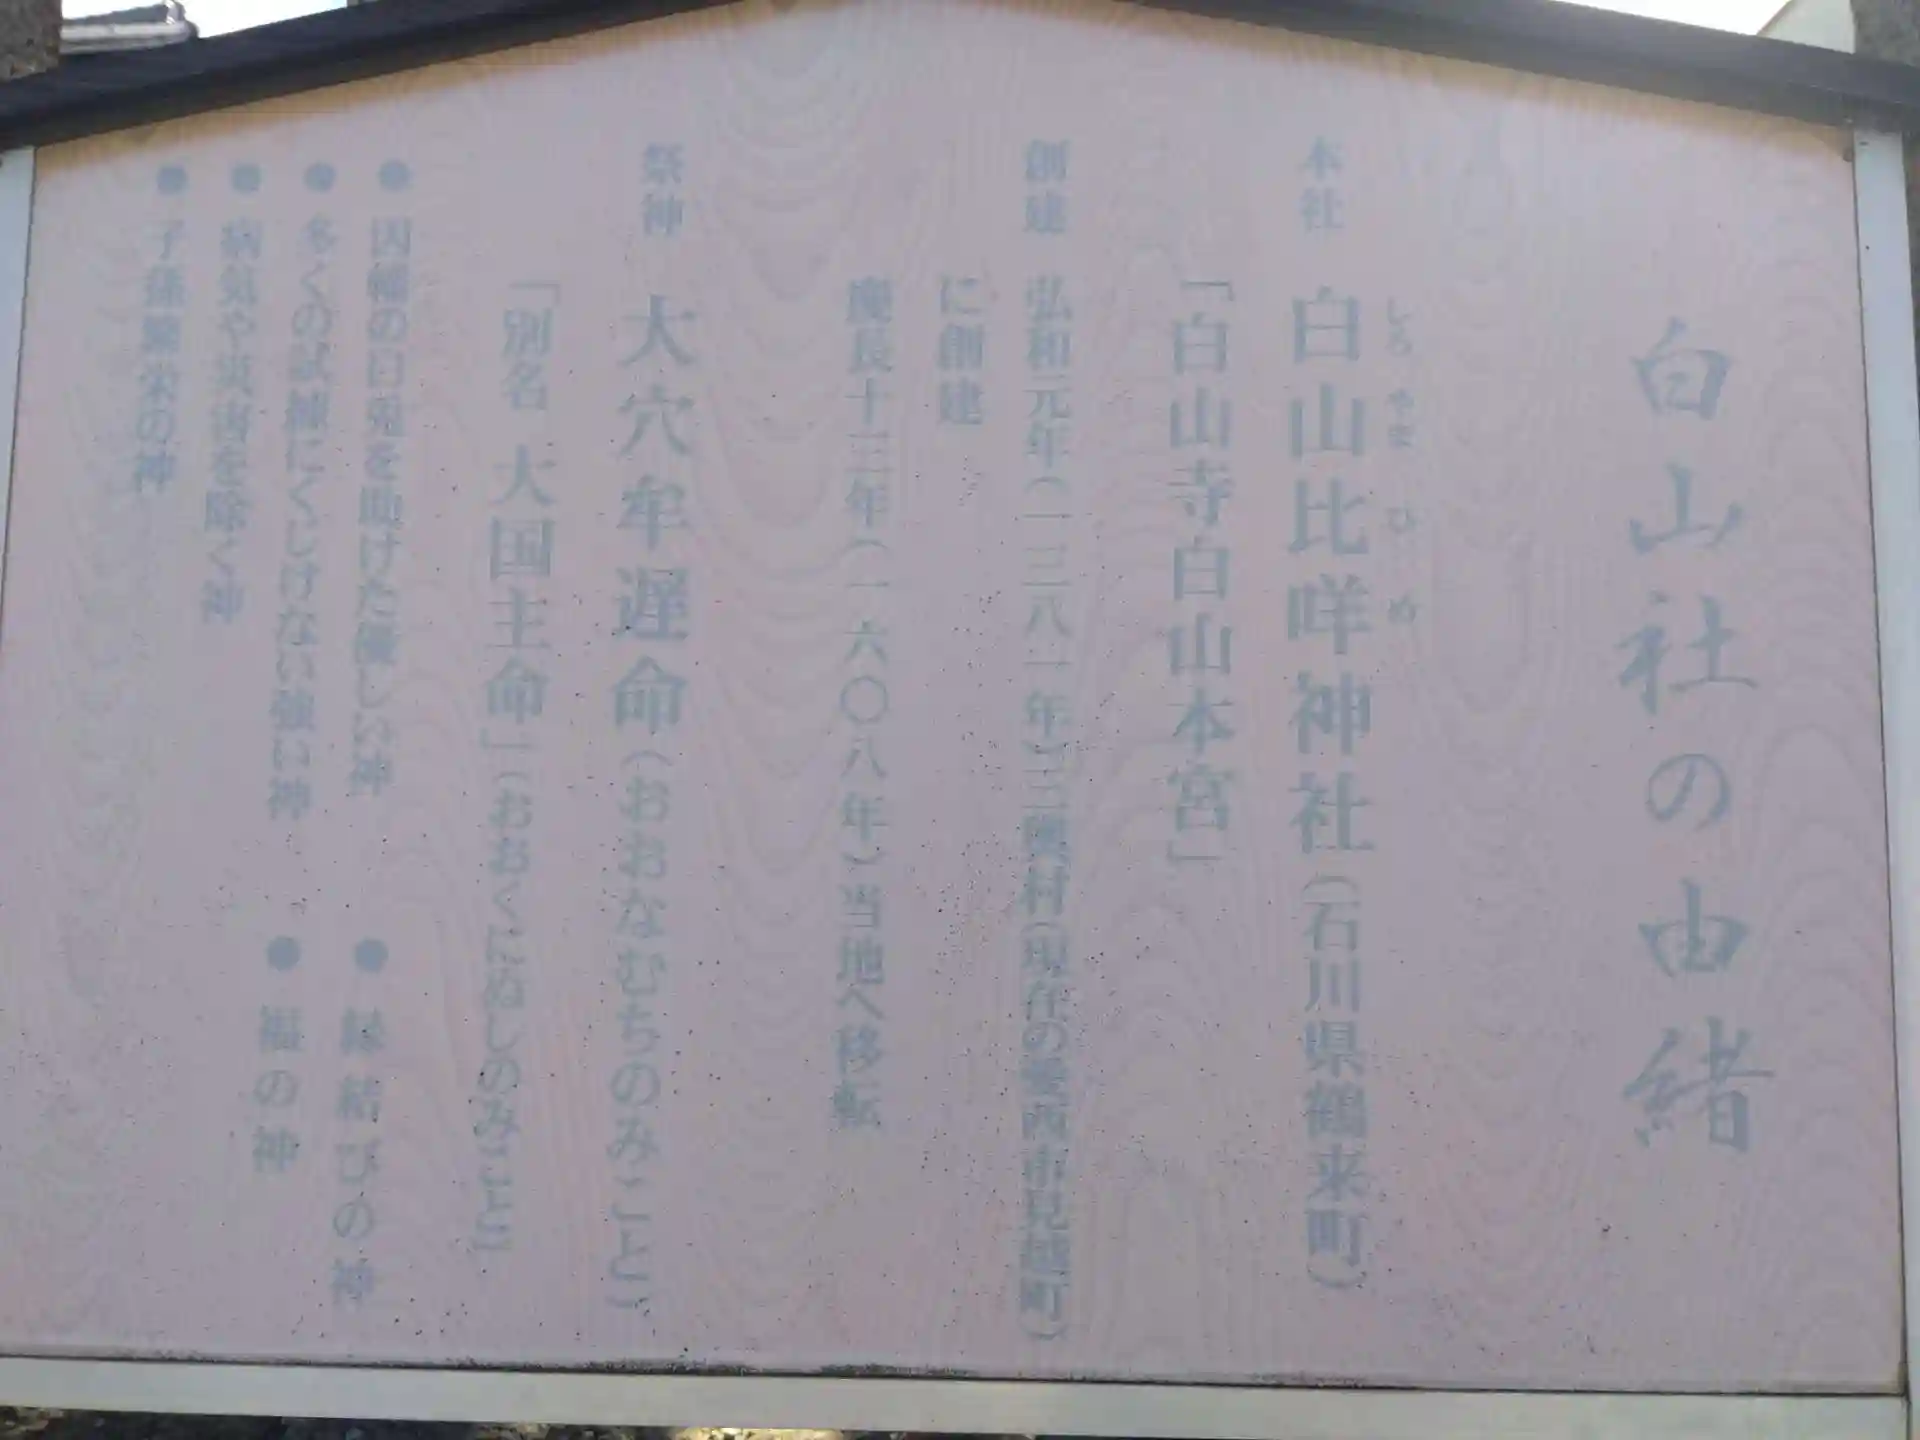 白山社の由緒
しろ やま ひ め
本社 白山比咩神社(石川県鶴来町)
「白山寺白山本宮」
創建 弘和元年(一三八一年)三輿村(現在の愛西市見越町)
に創建
慶長十三年(一六〇八年)当地へ移転
祭神 大穴牟遅命(おおなむちのみこと)
「別名 大国主命」(おおくにぬしのみこと)
● 因幡の白兎を助けた優しい神
● 縁結びの神
● 多くの試練にくじけない強い神
● 福の神
● 病気や災害を除く神
● 子孫繁栄の神